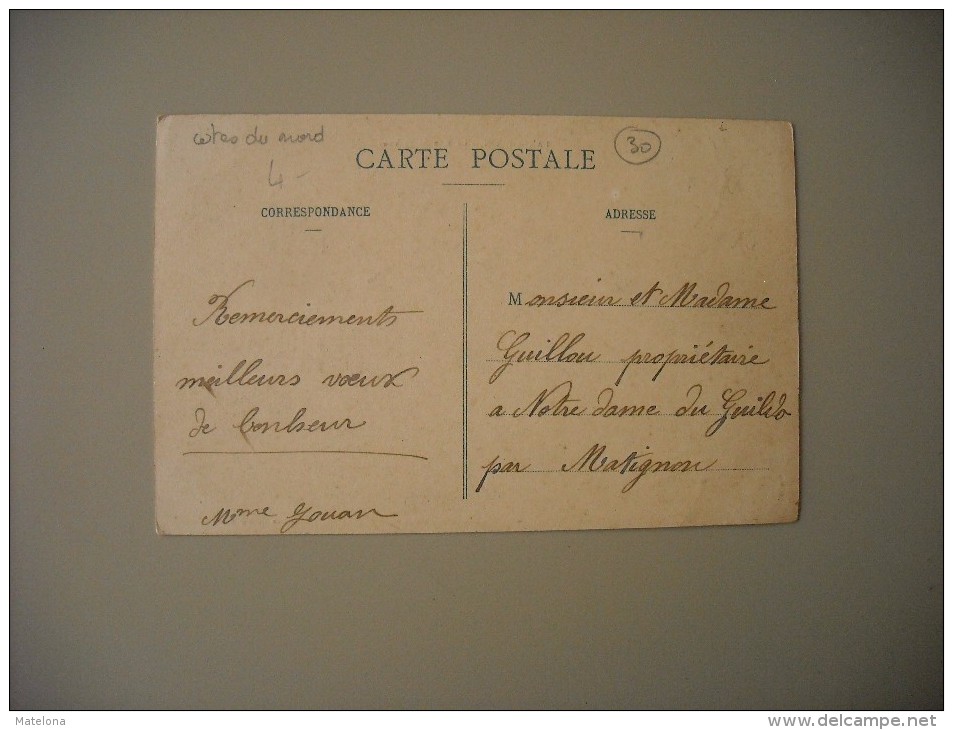 cotes du nord
4 -
30
CARTE POSTALE
CORRESPONDANCE
ADRESSE
Remerciements
meilleurs vœux
de bonheur
Mme Gouan
Monsieur et Madame
Guillou propriétaire
a Notre dame du Guildo
par Matignon
Matelona
www.delcampe.net